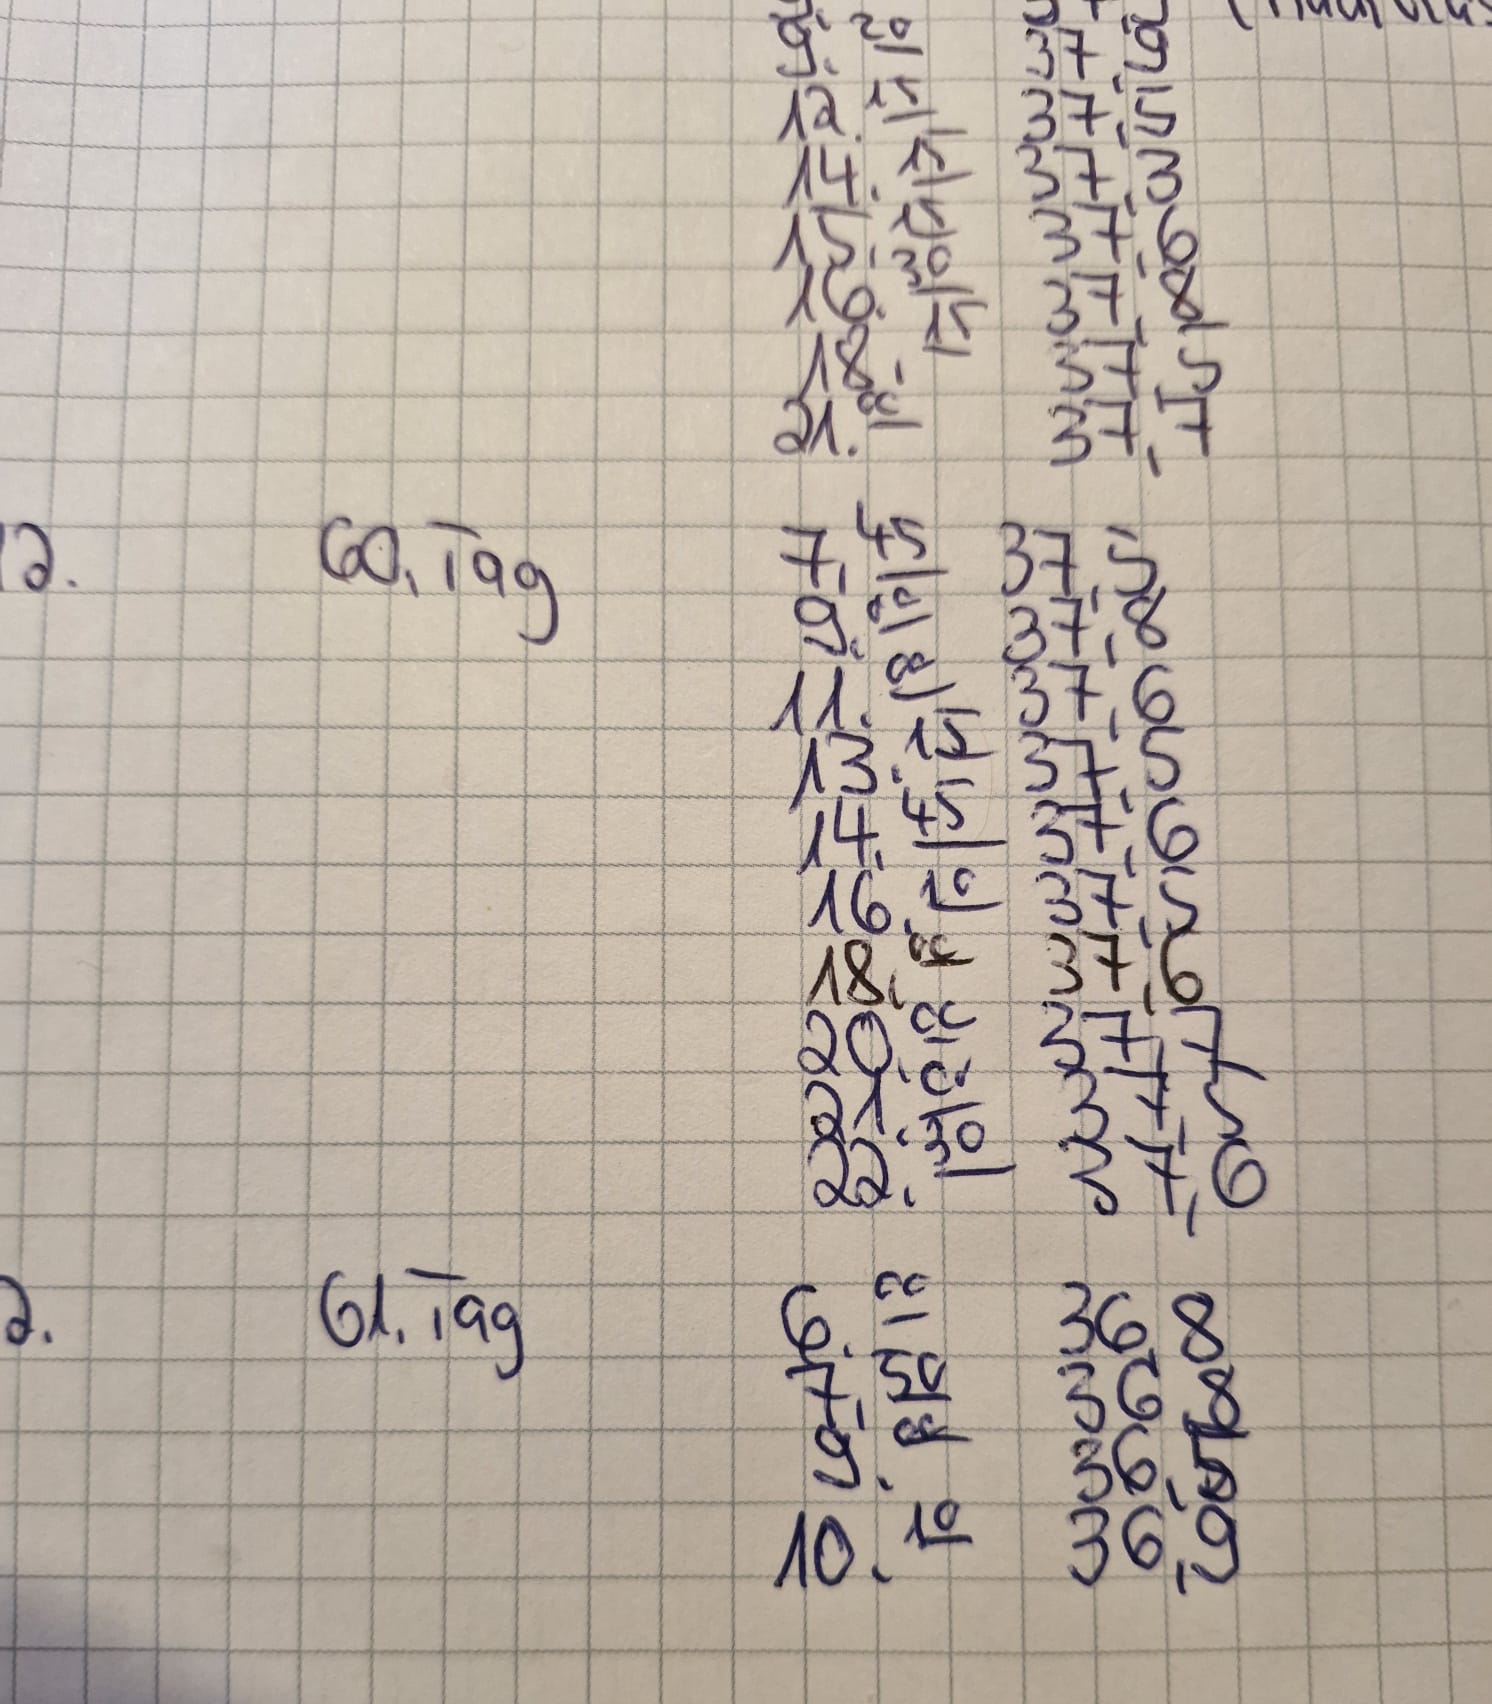 9.20 37,9
12.15 37,5
14.15 37,3
15.15 37,6
16.30 37,8
18.15 37,5
21.00 37,7
12. 60. Tag 7.45 37,5
9.10 37,8
11.00 37,6
13.15 37,5
14.45 37,6
16.10 37,5
18.00 37,6
20.00 37,7
21. 37,5
22.30 37,6
2. 61. Tag 6.00 36,8
7.50 36,8
9.00 36
10.10 36,9